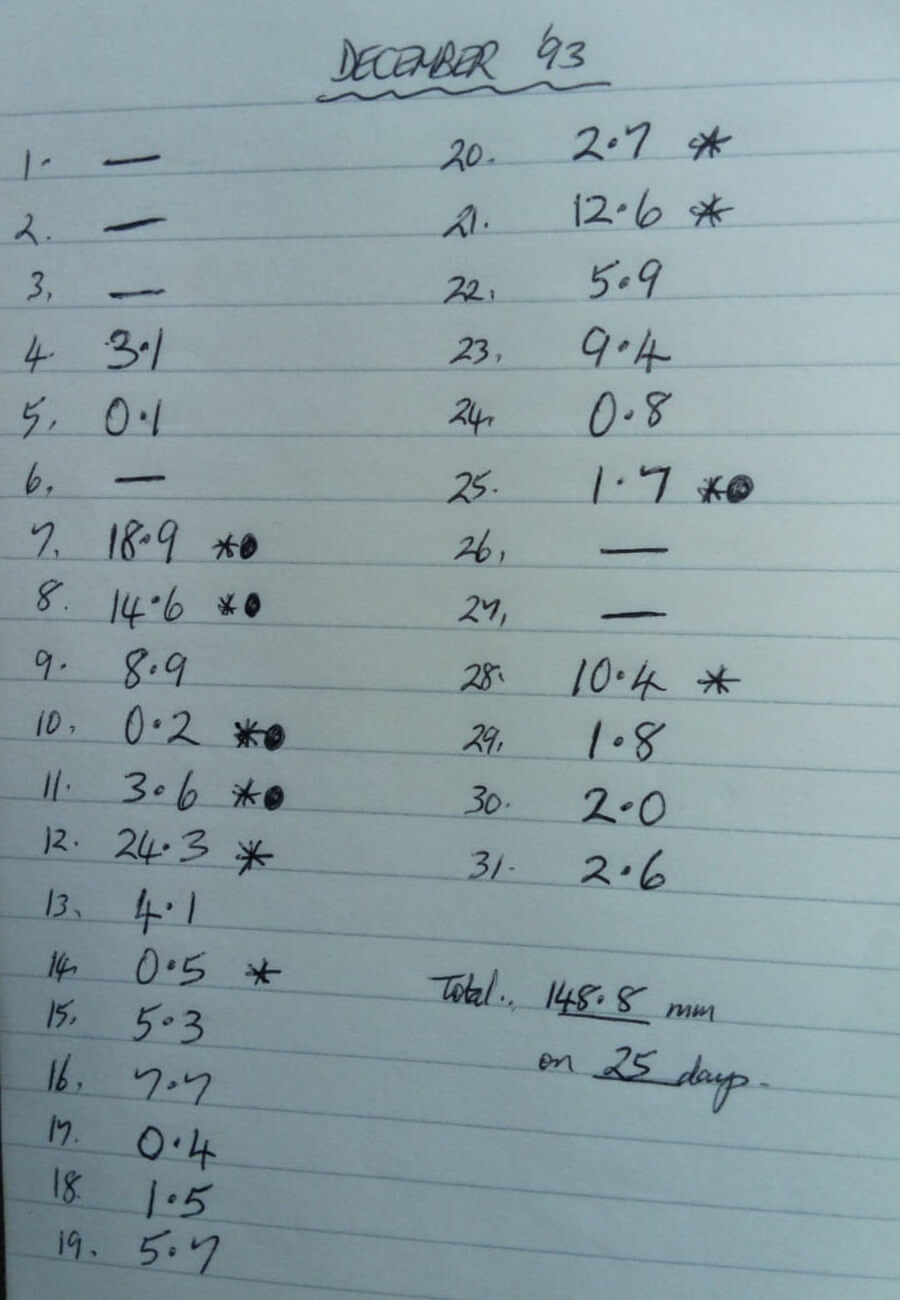 DECEMBER '93
1. —
2. —
3. —
4. 3.1
5. 0.1
6. —
7. 18.9 *●
8. 14.6 *●
9. 8.9
10. 0.2 *●
11. 3.6 *●
12. 24.3 *
13. 4.1
14. 0.5 *
15. 5.3
16. 7.7
17. 0.4
18. 1.5
19. 5.7
20. 2.7 *
21. 12.6 *
22. 5.9
23. 9.4
24. 0.8
25. 1.7 *●
26. —
27. —
28. 10.4 *
29. 1.8
30. 2.0
31. 2.6
Total.. 148.8 mm
on 25 days.